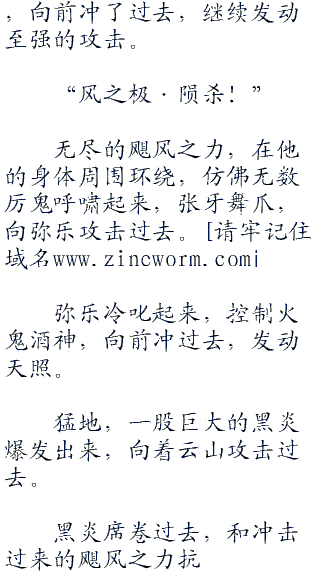 ，向前冲了过去，继续发动
至强的攻击。
“风之极·陨杀！”
无尽的飓风之力，在他
的身体周围环绕，仿佛无数
厉鬼呼啸起来，张牙舞爪，
向弥乐攻击过去。[请牢记住
域名www.zincworm.com|
弥乐冷叱起来，控制火
鬼酒神，向前冲过去，发动
天照。
猛地，一股巨大的黑炎
爆发出来，向着云山攻击过
去。
黑炎席卷过去，和冲击
过来的飓风之力抗